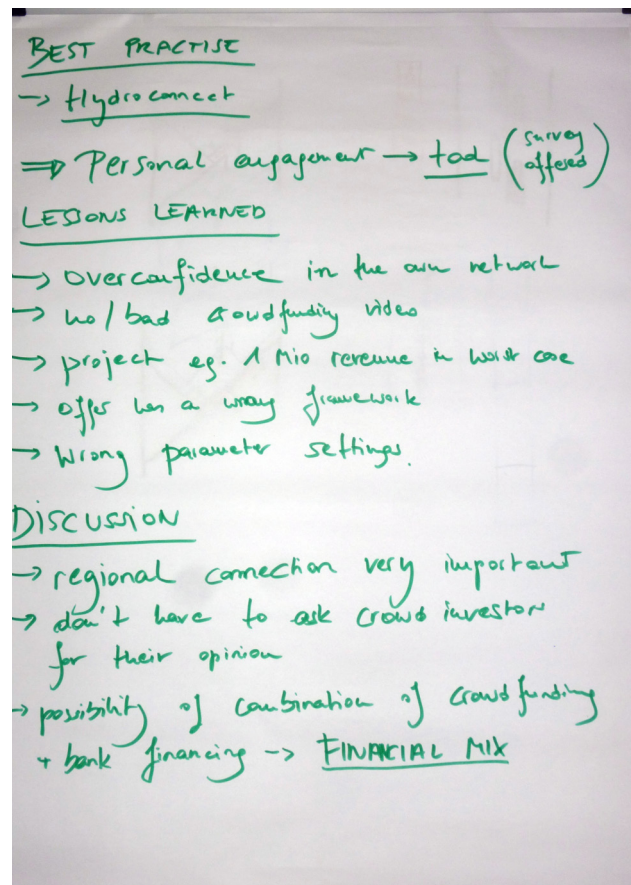 BEST PRACTISE
→ Hydroconnect
⇒ Personal engagement → tool (survey offered)
LESSONS LEARNED
→ Overconfidence in the own network
→ no/bad crowdfunding video
→ project eg. 1 Mio revenue in worst case
→ offer has a wrong framework
→ Wrong parameter settings.
DISCUSSION
→ regional connection very important
→ don't have to ask crowd investors
for their opinion
→ possibility of combination of crowdfunding
+ bank financing → FINANCIAL MIX